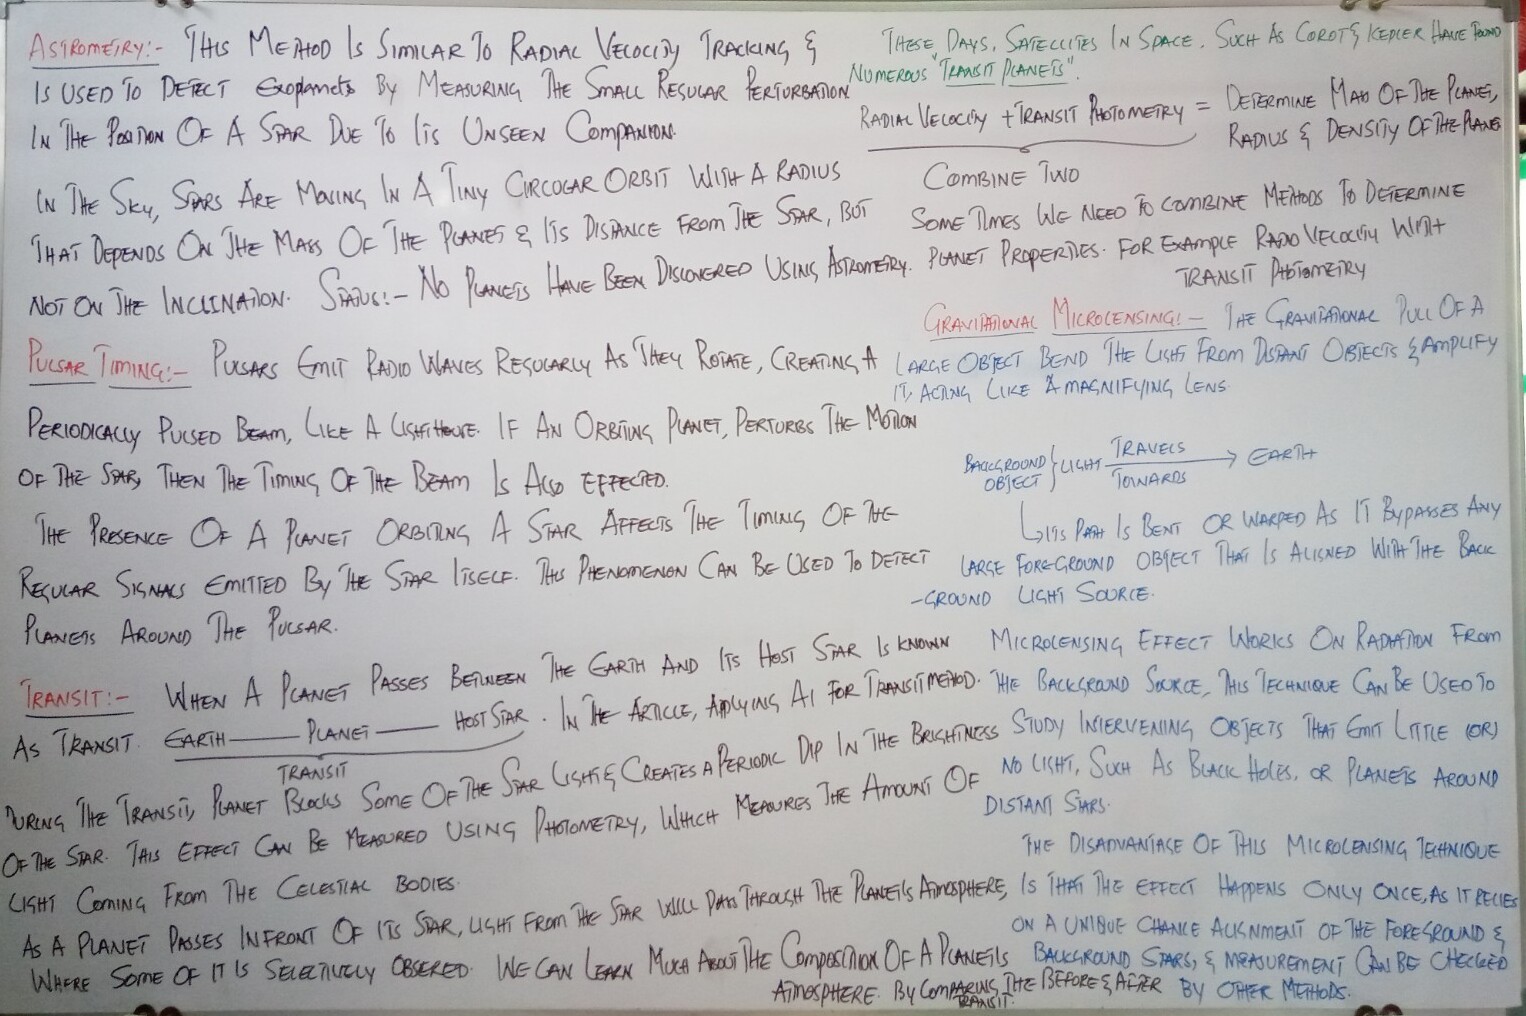 ASTROMETRY:- THIS METHOD IS SIMILAR TO RADIAL VELOCITY TRACKING &
IS USED TO DETECT Exoplanets BY MEASURING THE SMALL REGULAR PERTURBATION
IN THE POSITION OF A STAR DUE TO ITS UNSEEN COMPANION.
IN THE SKY, STARS ARE MOVING IN A TINY CIRCULAR ORBIT WITH A RADIUS
THAT DEPENDS ON THE MASS OF THE PLANET & ITS DISTANCE FROM THE STAR, BUT
NOT ON THE INCLINATION. STATUS:- NO PLANETS HAVE BEEN DISCOVERED USING ASTROMETRY.
PULSAR TIMING:- PULSARS EMIT RADIO WAVES REGULARLY AS THEY ROTATE, CREATING A
PERIODICALLY PULSED BEAM, LIKE A LIGHTHOUSE. IF AN ORBITING PLANET, PERTURBS THE MOTION
OF THE STAR, THEN THE TIMING OF THE BEAM IS ALSO EFFECTED.
THE PRESENCE OF A PLANET ORBITING A STAR AFFECTS THE TIMING OF THE
REGULAR SIGNALS EMITTED BY THE STAR ITSELF. THIS PHENOMENON CAN BE USED TO DETECT
PLANETS AROUND THE PULSAR.
TRANSIT:- WHEN A PLANET PASSES BETWEEN THE EARTH AND ITS HOST STAR IS KNOWN
AS TRANSIT. EARTH — PLANET — HOST STAR. IN THE ARTICLE, APPLYING AI FOR TRANSIT METHOD.
TRANSIT
DURING THE TRANSIT, PLANET BLOCKS SOME OF THE STAR LIGHT & CREATES A PERIODIC DIP IN THE BRIGHTNESS
OF THE STAR. THIS EFFECT CAN BE MEASURED USING PHOTOMETRY, WHICH MEASURES THE AMOUNT OF
LIGHT COMING FROM THE CELESTIAL BODIES.
AS A PLANET PASSES INFRONT OF ITS STAR, LIGHT FROM THE STAR WILL PASS THROUGH THE PLANET'S ATMOSPHERE,
WHERE SOME OF IT IS SELECTIVELY OBSERED. WE CAN LEARN MUCH ABOUT THE COMPOSITION OF A PLANET'S
ATMOSPHERE. BY COMPARING THE BEFORE & AFTER
TRANSIT.
THESE DAYS, SATELLITES IN SPACE, SUCH AS COROT & KEPLER HAVE FOUND
NUMEROUS "TRANSIT PLANETS".
RADIAL VELOCITY + TRANSIT PHOTOMETRY = DETERMINE MASS OF THE PLANET,
RADIUS & DENSITY OF THE PLANET
COMBINE TWO
SOME TIMES WE NEED TO COMBINE METHODS TO DETERMINE
PLANET PROPERTIES. FOR EXAMPLE RADIO VELOCITY WITH
TRANSIT PHOTOMETRY
GRAVITATIONAL MICROLENSING:- THE GRAVITATIONAL PULL OF A
LARGE OBJECT BEND THE LIGHT FROM DISTANT OBJECTS & AMPLIFY
IT, ACTING LIKE A MAGNIFYING LENS.
BACKGROUND OBJECT } LIGHT TRAVELS TOWARDS → EARTH
↳ ITS PATH IS BENT OR WARPED AS IT BYPASSES ANY
LARGE FOREGROUND OBJECT THAT IS ALIGNED WITH THE BACK
-GROUND LIGHT SOURCE.
MICROLENSING EFFECT WORKS ON RADIATION FROM
THE BACKGROUND SOURCE, THIS TECHNIQUE CAN BE USED TO
STUDY INTERVENING OBJECTS THAT EMIT LITTLE (OR)
NO LIGHT, SUCH AS BLACK HOLES, OR PLANETS AROUND
DISTANT STARS.
THE DISADVANTAGE OF THIS MICROLENSING TECHNIQUE
IS THAT THE EFFECT HAPPENS ONLY ONCE, AS IT RELIES
ON A UNIQUE CHANCE ALIGNMENT OF THE FOREGROUND &
BACKGROUND STARS, & MEASUREMENT CAN BE CHECKED
BY OTHER METHODS.